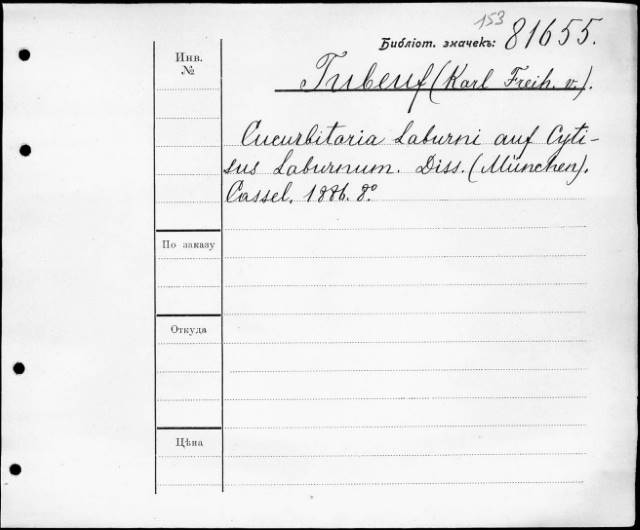 153
Библіот. значекъ: 81655.
Инв.
№
Tubeuf (Karl Freih. v.).
Cucurbitaria Laburni auf Cyti-
sus Laburnum. Diss. (München).
Cassel. 1886. 8°.
По заказу
Откуда
Цѣна